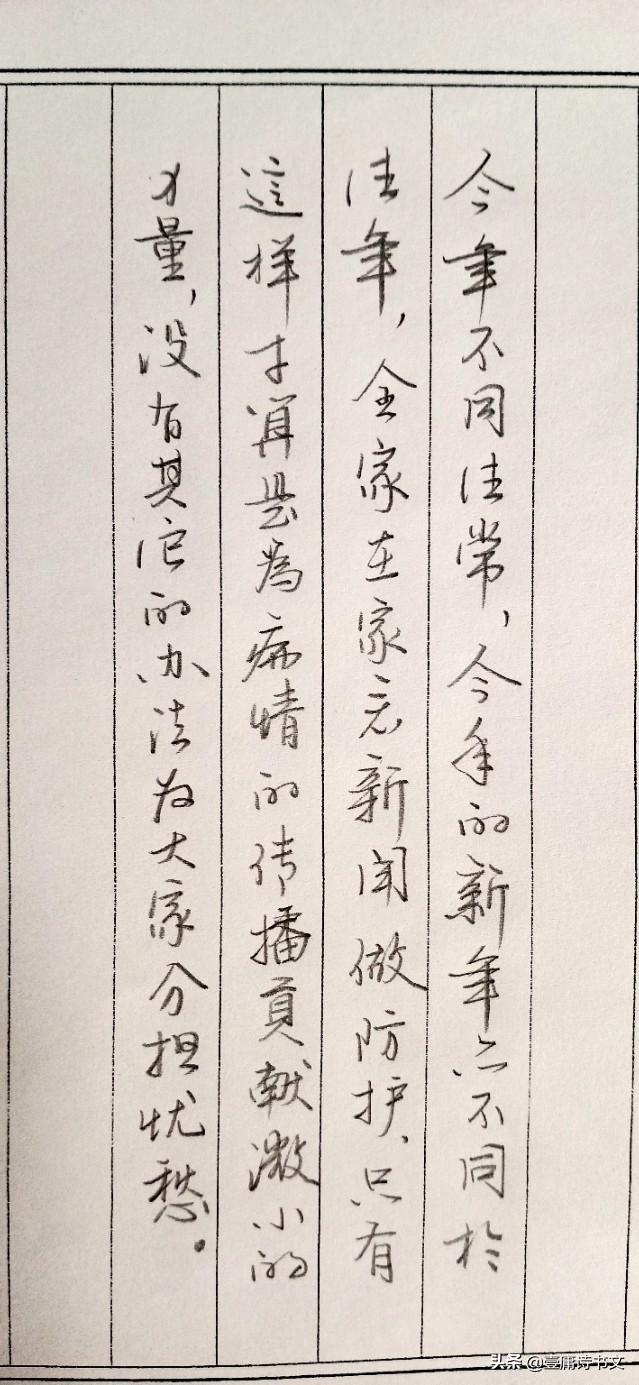 今年不同往常,今年的新年亦不同於
往年,全家在家看新闻做防护,只有
這样才算是為病情的传播貢献微小的
力量,没有其它的办法为大家分担忧愁。
头条@壹庸诗书文